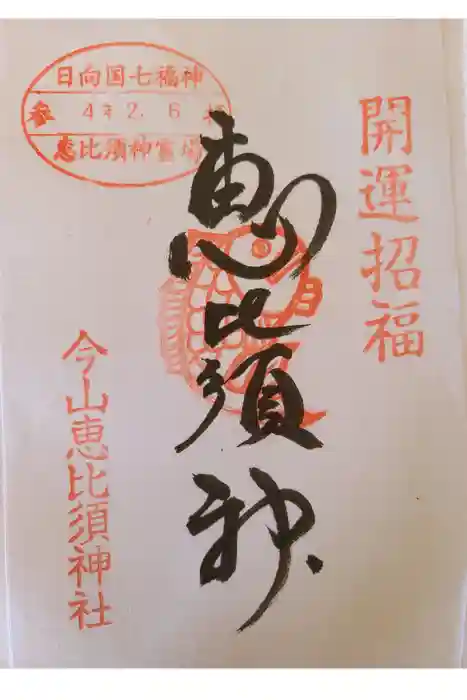 開運招福
日向国七福神
参 4年2.6 拝
恵比須神霊場
恵比須神
今山恵比須神社